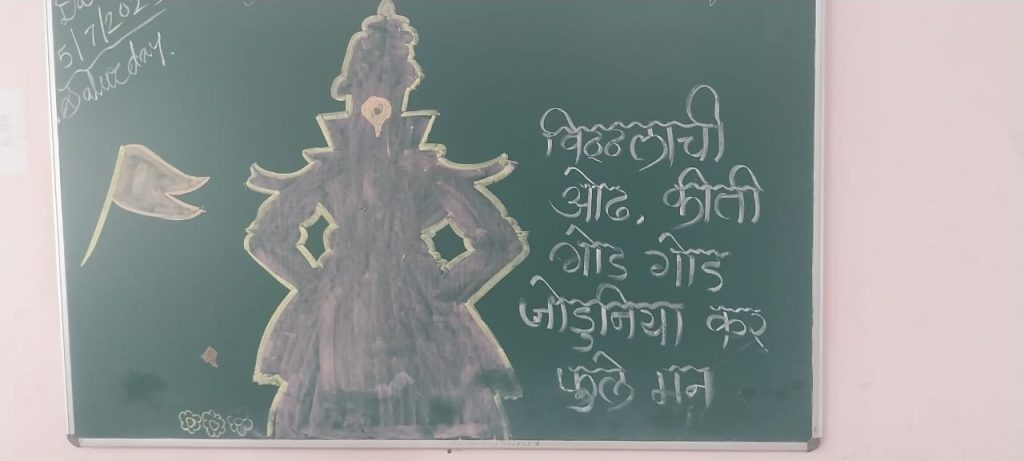 5/7/202
Saturday.
विठ्ठलाची
ओढ. कीती
गोड गोड
जोडुनिया कर
फुले मन